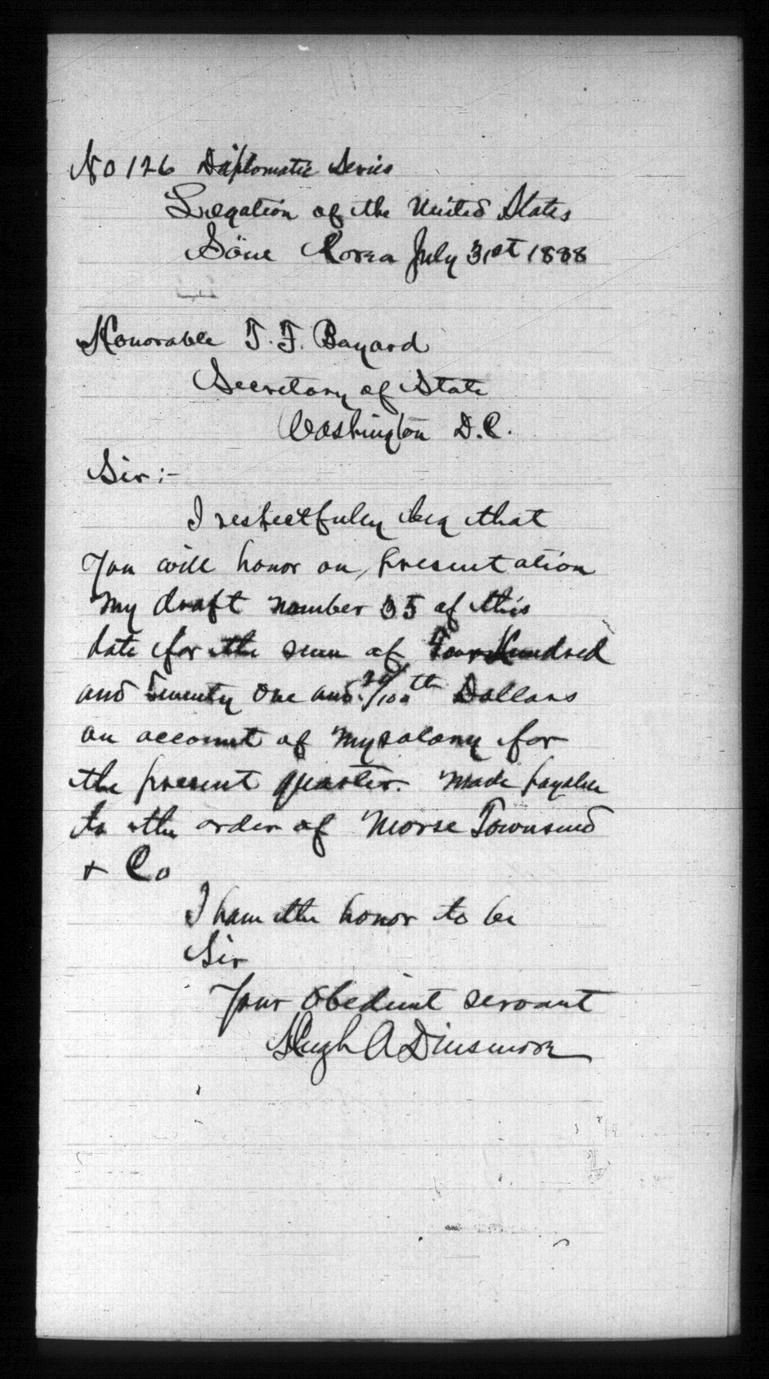 No 126 Diplomatic Series
Legation of the United States
Söul Korea July 31st 1888
Honorable T. F. Bayard
Secretary of State
Washington D.C.
Sir:-
I respectfully beg that
You will honor on presentation
my draft number 35 of this
date for the sum of Four Hundred
and Twenty One and /100th Dollars
on account of my salary for
the present quarter. Made payable
to the order of Morse Townsend
& Co
I have the honor to be
Sir
Your obedient servant
Hugh A Dinsmore